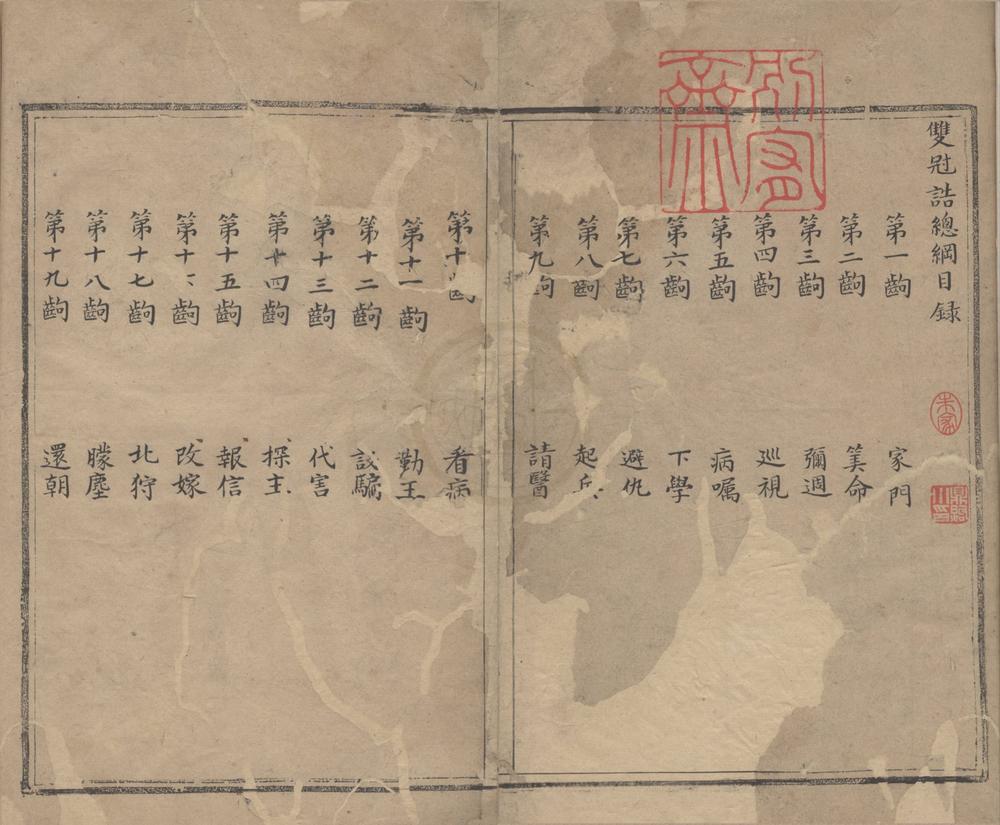 雙冠誥總綱目錄
第一齣 家門
第二齣 筭命
第三齣 彌週
第四齣 巡視
第五齣 病嘱
第六齣 下學
第七齣 避仇
第八齣 起兵
第九齣 請醫
第十齣 看病
第十一齣 勤王
第十二齣 設騙
第十三齣 代害
第十四齣 探主
第十五齣 報信
第十六齣 改嫁
第十七齣 北狩
第十八齣 朦塵
第十九齣 還朝